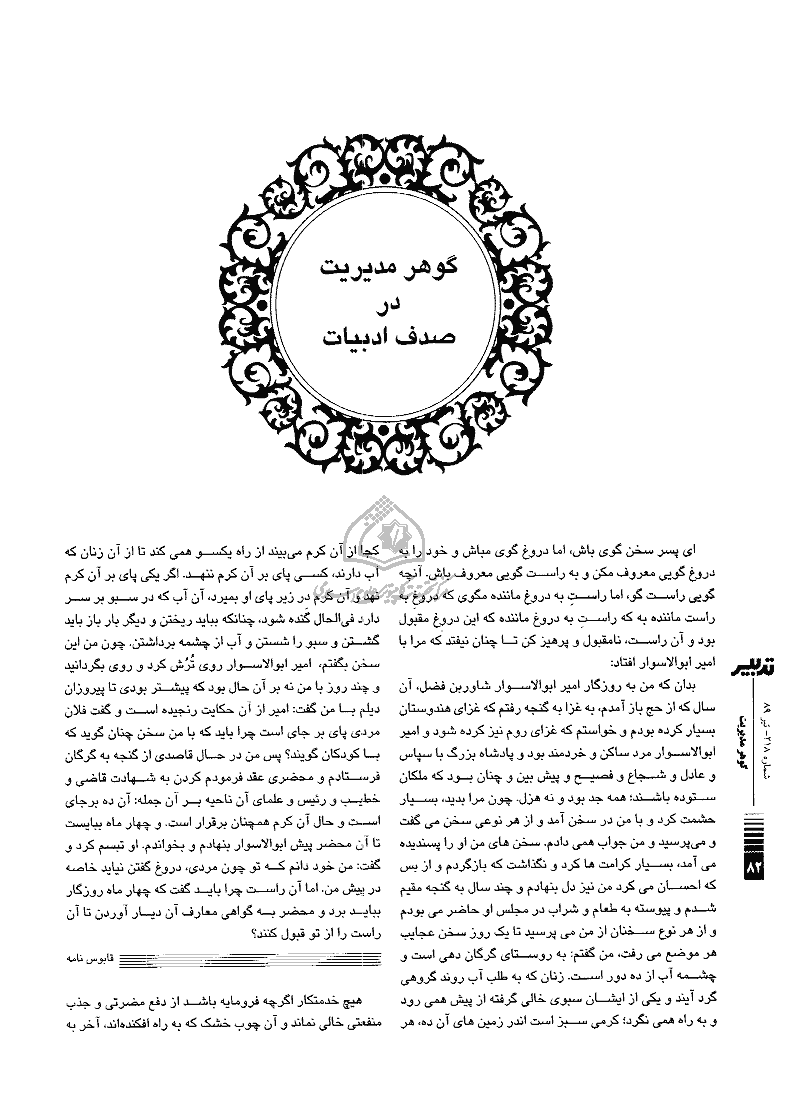 گوهر مدیریت
در
صدف ادبیات
ای پسر سخن گوی باش، اما دروغ گوی مباش و خود را به
دروغ گویی معروف مکن و به راست گویی معروف باش. آنچه
گویی راست گو، اما راستِ به دروغ ماننده مگوی که دروغ به
راست ماننده به که راستِ به دروغ ماننده که این دروغ مقبول
بود و آن راست، نامقبول و پرهیز کن تا چنان نیفتد که مرا با
امیر ابوالاسوار افتاد:
بدان که من به روزگار امیر ابوالاسوار شاوربن فضل، آن
سال که از حج باز آمدم، به غزا به گنجه رفتم که غزای هندوستان
بسیار کرده بودم و خواستم که غزای روم نیز کرده شود و امیر
ابوالاسوار مرد ساکن و خردمند بود و پادشاه بزرگ با سپاس
و عادل و شجاع و فصیح و پیش بین و چنان بود که ملکان
ستوده باشند؛ همه جد بود و نه هزل. چون مرا بدید، بسیار
حشمت کرد و با من در سخن آمد و از هر نوعی سخن می گفت
و می‌پرسید و من جواب همی دادم. سخن های من او را پسندیده
می آمد، بسیار کرامت ها کرد و نگذاشت که بازگردم و از بس
که احسان می کرد من نیز دل بنهادم و چند سال به گنجه مقیم
شدم و پیوسته به طعام و شراب در مجلس او حاضر می بودم
و از هر نوع سخنان از من می پرسید تا یک روز سخن عجایب
هر موضع می رفت، من گفتم: به روستای گرگان دهی است و
چشمه آب از ده دور است. زنان که به طلب آب روند گروهی
گرد آیند و یکی از ایشان سبوی خالی گرفته از پیش همی رود
و به راه همی نگرد؛ کرمی سبز است اندر زمین های آن ده، هر
کجا از آن کرم می‌بیند از راه یکسو همی کند تا از آن زنان که
آب دارند، کسی پای بر آن کرم ننهد. اگر یکی پای بر آن کرم
نهد و آن کرم در زیر پای او بمیرد، آن آب که در سبو بر سر
دارد فی‌الحال گَنده شود، چنانکه بباید ریختن و دیگر بار باز باید
گشتن و سبو را شستن و آب از چشمه برداشتن. چون من این
سخن بگفتم، امیر ابوالاسوار روی تُرُش کرد و روی بگردانید
و چند روز با من نه بر آن حال بود که پیشتر بودی تا پیروزان
دیلم با من گفت: امیر از آن حکایت رنجیده است و گفت فلان
مردی پای بر جای است چرا باید که با من سخن چنان گوید که
با کودکان گویند؟ پس من در حال قاصدی از گنجه به گرگان
فرستادم و محضری عقد فرمودم کردن به شهادت قاضی و
خطیب و رئیس و علمای آن ناحیه بر آن جمله: آن ده برجای
است و حال آن کرم همچنان برقرار است. و چهار ماه ببایست
تا آن محضر پیش ابوالاسوار بنهادم و بخواندم. او تبسم کرد و
گفت: من خود دانم که تو چون مردی، دروغ گفتن نیاید خاصه
در پیش من. اما آن راست چرا باید گفت که چهار ماه روزگار
بباید برد و محضر به گواهی معارف آن دیار آوردن تا آن
راست را از تو قبول کنند؟
قابوس نامه
هیچ خدمتکار اگرچه فرومایه باشد از دفع مضرتی و جذب
منفعتی خالی نماند و آن چوب خشک که به راه افکنده‌اند، آخر به
تدبیر
شماره ۲۱۸- تیر ۸۹
گوهر مدیریت
۸۲